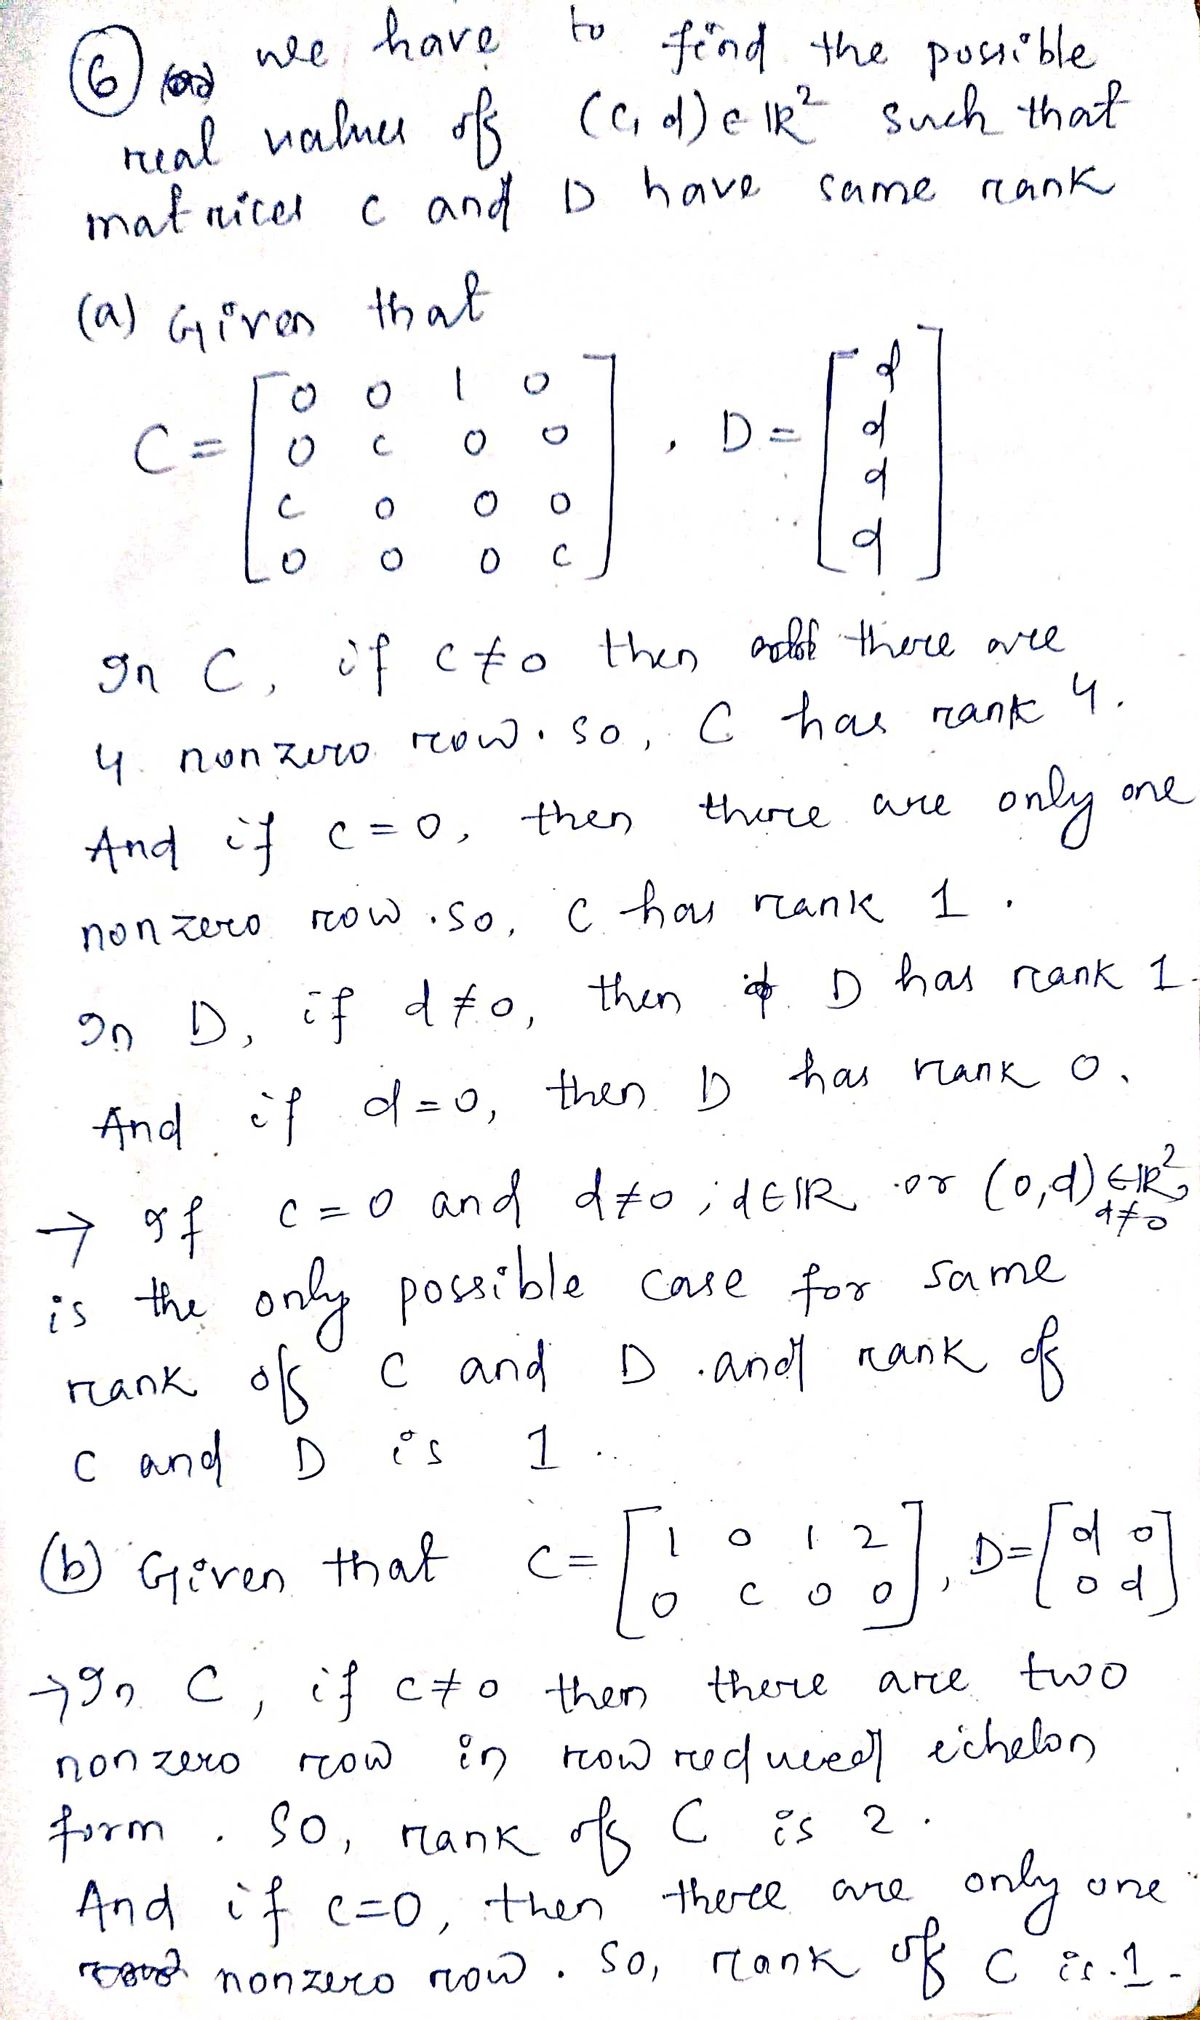 6 we have to find the possible
real values of (c, d) ∈ ℝ² such that
matrices C and D have same rank
(a) Given that
C = [0 0 1 0
0 c 0 0
c 0 0 0
0 0 0 c] , D = [d
d
d
d]
In C, if c ≠ 0 then there are
4 nonzero row. So, C has rank 4.
And if c = 0, then there are only one
nonzero row. so, C has rank 1.
In D, if d ≠ 0, then D has rank 1.
And if d = 0, then D has rank 0.
→ If c = 0 and d ≠ 0 ; d ∈ ℝ or (0, d) ∈ ℝ², d ≠ 0
is the only possible case for same
rank of C and D . and rank of
C and D is 1 .
(b) Given that C = [1 0 1 2
0 c 0 0] , D = [d 0
0 d]
→ In C, if c ≠ 0 then there are two
nonzero row in row reduced echelon
form . SO, rank of C is 2 .
And if c = 0, then there are only one
nonzero row . So, rank of C is 1 .